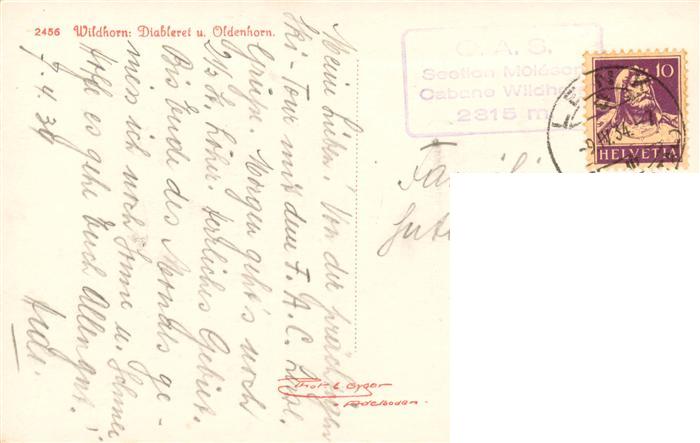 2456 Wildhorn: Diableret u. Oldenhorn.
C. A. S.
Section Moléson
Cabane Wildhorn
2315 m
10
HELVETIA
Meine Lieben! Von der prächtigen
Ski-Tour mit dem F.A.C.
Grüße. Morgen geht's noch
höher. herrliches Gebiet.
Bis Ende des Monats ge-
miss ich noch Sonne u. Schnee
Hoffe es gehe Euch Allen gut!
7.4.34
Familie
Phot. E. Gyger
Adelboden.